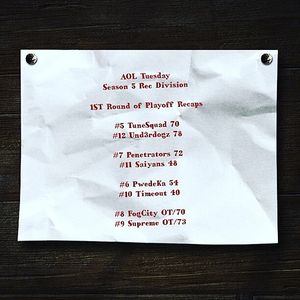 AOL Tuesday
Season 5 Rec Division
1ST Round of Playoff Recaps
#5 TuneSquad 70
#12 Und3rdogz 78
#7 Penetrators 72
#11 Saiyans 48
#6 PwedeKa 54
#10 Timeout 40
#8 FogCity OT/70
#9 Supreme OT/73